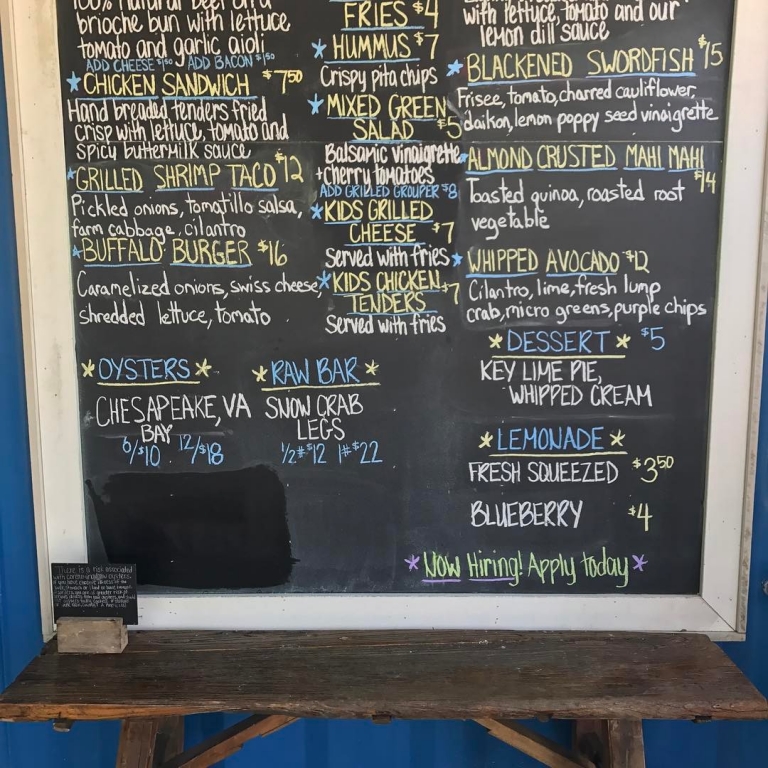 100% natural beef on a
brioche bun with lettuce
tomato and garlic aioli
ADD CHEESE $1.50 ADD BACON $1.50
CHICKEN SANDWICH $7.50
Hand breaded tenders fried
crisp with lettuce, tomato and
spicy buttermilk sauce
GRILLED SHRIMP TACO $12
Pickled onions, tomatillo salsa,
farm cabbage, cilantro
BUFFALO BURGER $16
Caramelized onions, swiss cheese,
shredded lettuce, tomato
FRIES $4
HUMMUS $7
Crispy pita chips
MIXED GREEN
SALAD $5
Balsamic vinaigrette
+cherry tomatoes
ADD GRILLED GROUPER $8
KIDS GRILLED
CHEESE $7
Served with fries
KIDS CHICKEN
TENDERS $7
Served with fries
with lettuce, tomato and our
lemon dill sauce
BLACKENED SWORDFISH $15
Frisee, tomato, charred cauliflower,
daikon, lemon poppy seed vinaigrette
ALMOND CRUSTED MAHI MAHI
$14
Toasted quinoa, roasted root
vegetable
WHIPPED AVOCADO $12
Cilantro, lime, fresh lump
crab, micro greens, purple chips
DESSERT $5
KEY LIME PIE,
WHIPPED CREAM
OYSTERS
CHESAPEAKE, VA
BAY
6/$10 12/$18
RAW BAR
SNOW CRAB
LEGS
1/2# $12 1# $22
LEMONADE
FRESH SQUEEZED $3.50
BLUEBERRY $4
NOW Hiring! Apply today
There is a risk associated
with consuming raw oysters.